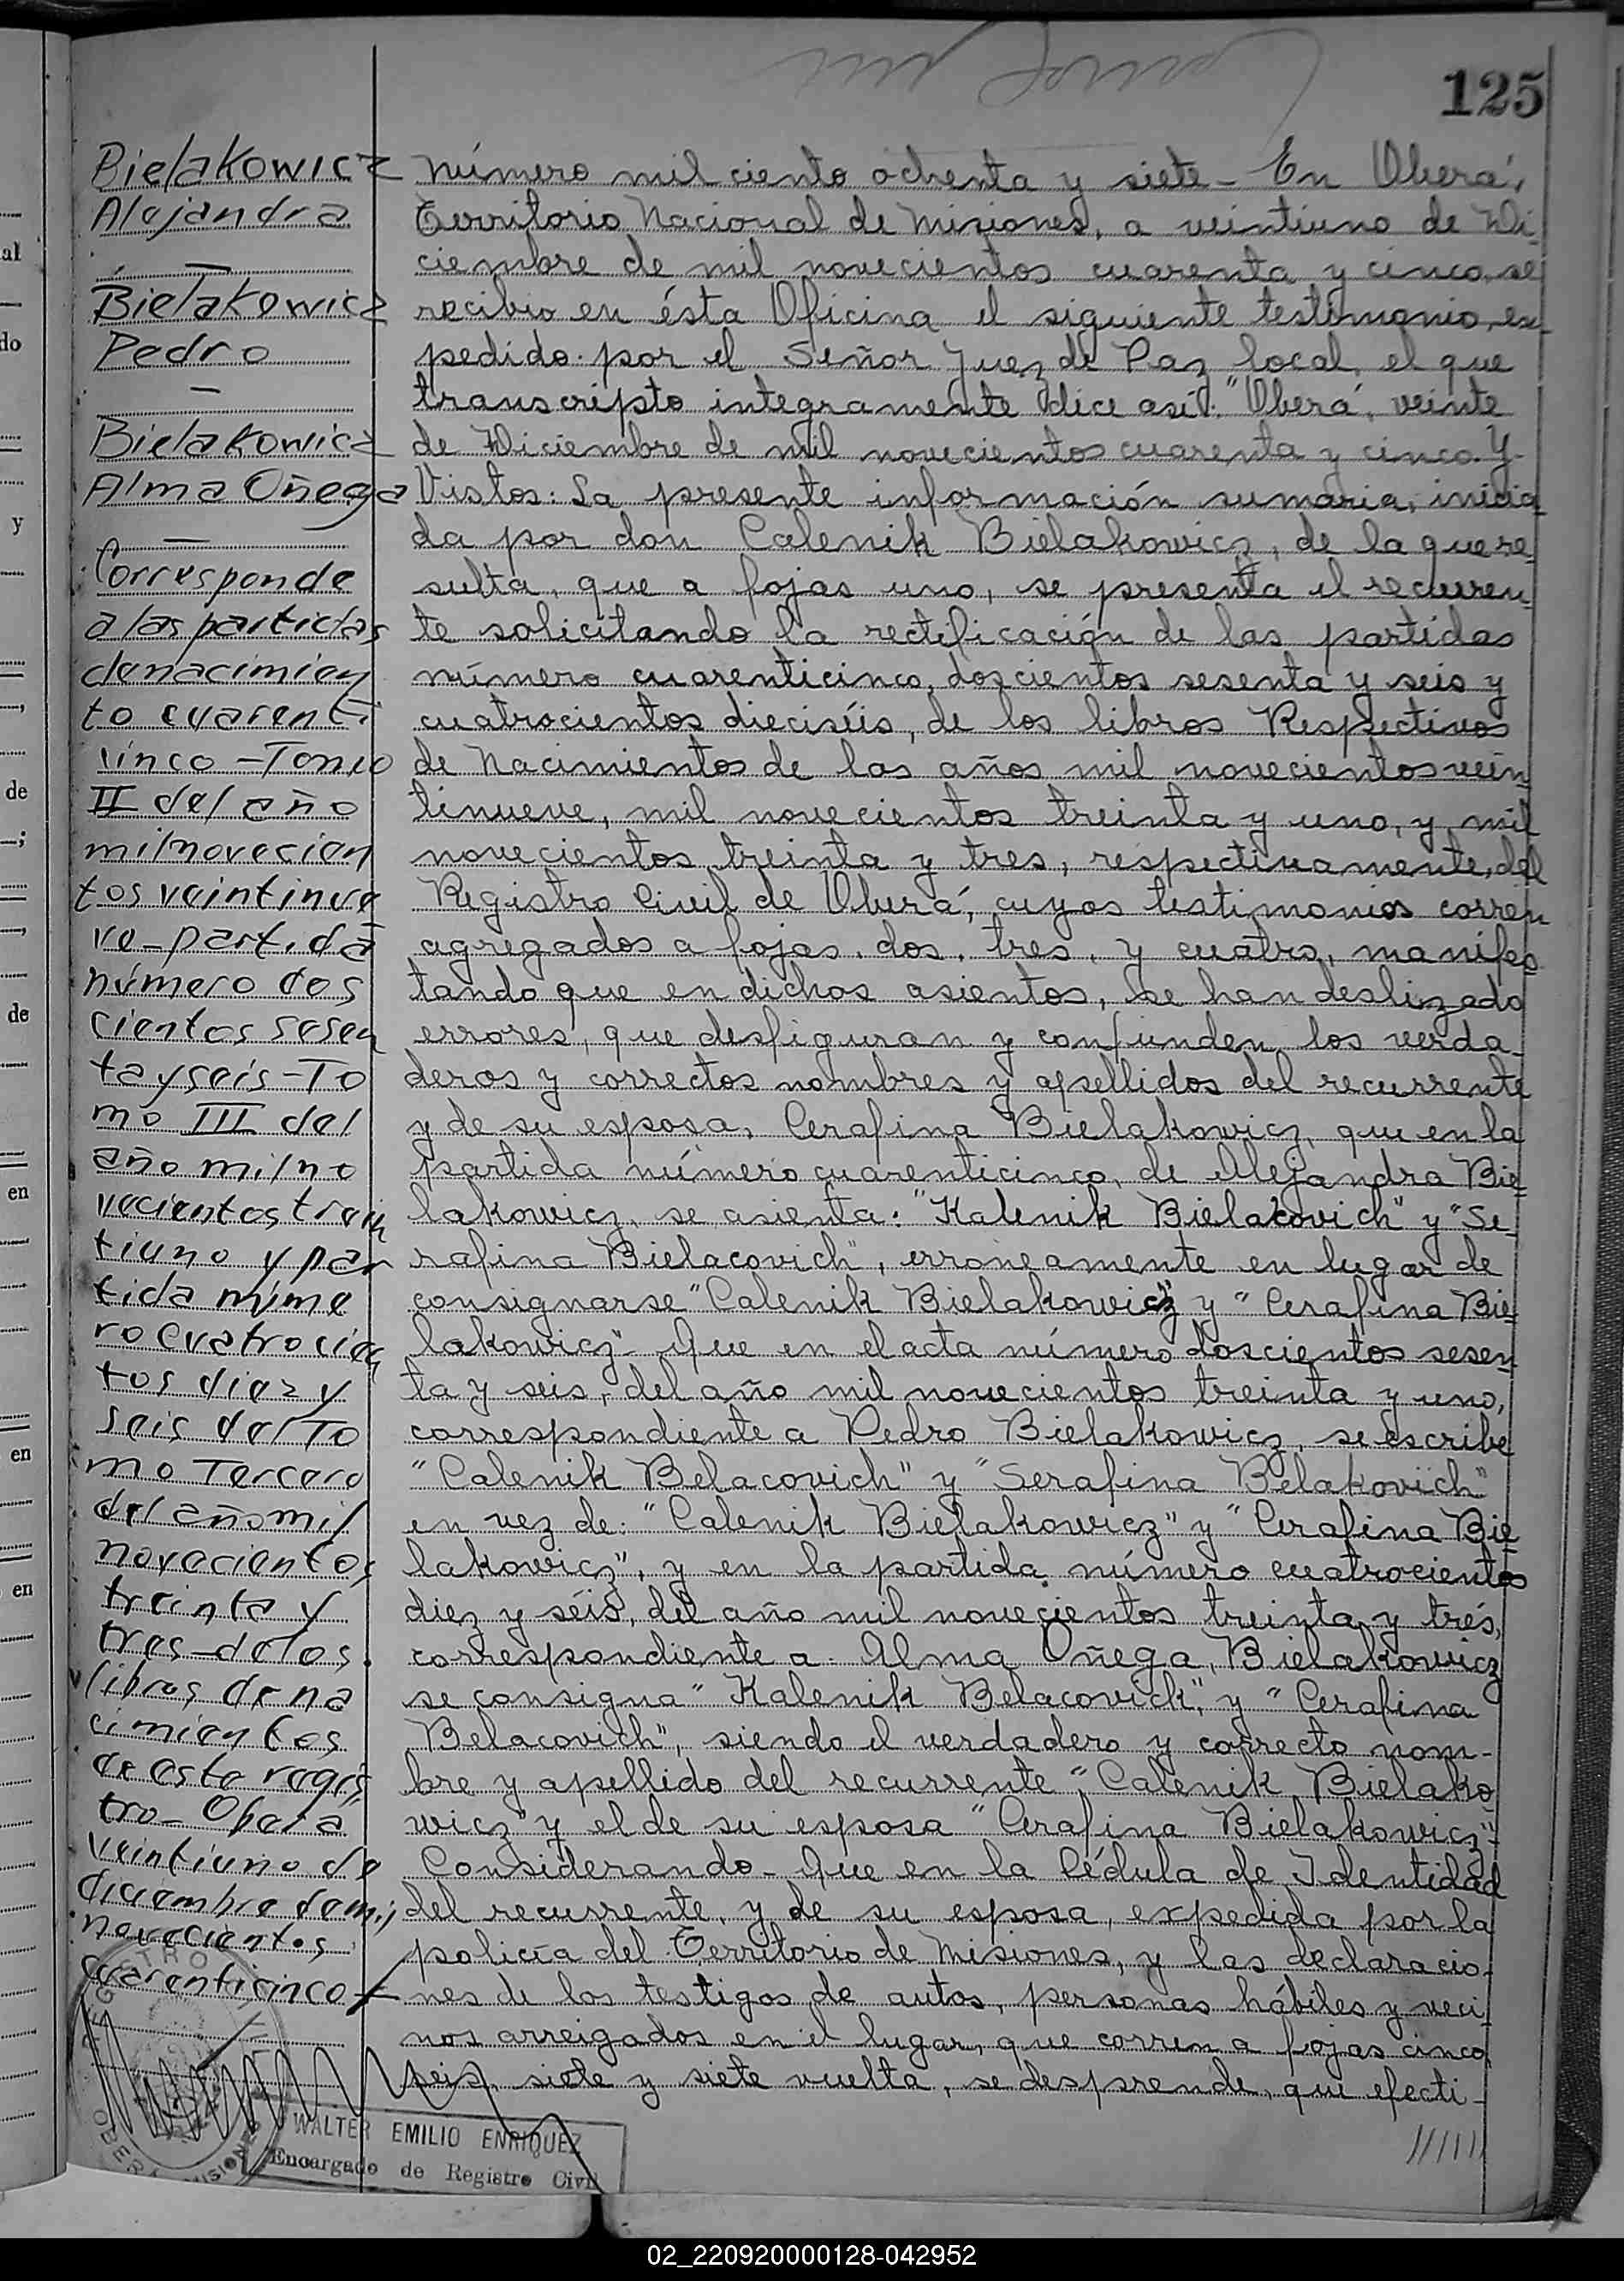 125
Bielakowicz
Alejandra
Bielakowicz
Pedro
Bielakowicz
Alma Oñega
Corresponde
a las partidas
de nacimien
to cuarenti
cinco - Tomo
II del año
mil novecien
tos veintinue
ve - partida
número dos
cientos sesen
ta y seis - To
mo III del
año mil no
vecientos trein
tiuno y par
tida núme
ro cuatrocien
tos diez y
seis del To
mo Tercero
del año mil
novecientos
treinta y
tres - de los
libros de na
cimientos
de este regis
tro - Oberá
veintiuno de
diciembre de mil
novecientos
cuarenticinco
número mil ciento ochenta y siete - En Oberá,
Territorio Nacional de Misiones, a veintiuno de Di-
ciembre de mil novecientos cuarenta y cinco, se
recibio en ésta Oficina el siguiente testimonio, ex-
pedido por el Señor Juez de Paz local, el que
transcripto integramente dice así: "Oberá, veinte
de Diciembre de mil novecientos cuarenta y cinco. Y
Vistos: La presente información sumaria, inicia-
da por don Calenik Bielakowicz, de la que re-
sulta, que a fojas uno, se presenta el recurren-
te solicitando la rectificación de las partidas
número cuarenticinco, doscientos sesenta y seis y
cuatrocientos dieciséis, de los libros Respectivos
de Nacimientos de los años mil novecientos vein-
tinueve, mil novecientos treinta y uno, y mil
novecientos treinta y tres, respectivamente, del
Registro Civil de Oberá, cuyos testimonios corren
agregados a fojas, dos, tres, y cuatro, manifes-
tando que en dichos asientos, se han deslizado
errores, que desfiguran y confunden los verda-
deros y correctos nombres y apellidos del recurrente
y de su esposa, Cerafina Bielakowicz, que en la
partida número cuarenticinco, de Alejandra Bie-
lakowicz, se asienta: "Kalenik Bielacovich" y "Se-
rafina Bielacovich", erróneamente en lugar de
consignarse "Calenik Bielakowicz" y "Cerafina Bie-
lakowicz" - Que en el acta número doscientos sesen-
ta y seis, del año mil novecientos treinta y uno,
correspondiente a Pedro Bielakowicz, se escribe
"Calenik Belacovich" y "Serafina Belakovich"
en vez de: "Calenik Bielakowicz" y "Cerafina Bie-
lakowicz", y en la partida número cuatrocientos
diez y séis, del año mil novecientos treinta y trés,
correspondiente a Alma Oñega, Bielakowicz
se consigna "Kalenik Belacovich", y "Cerafina
Belacovich", siendo el verdadero y correcto nom-
bre y apellido del recurrente "Calenik Bielako
wicz" y el de su esposa "Cerafina Bielakowicz" -
Considerando - Que en la Cédula de Identidad
del recurrente, y de su esposa, expedida por la
policía del Territorio de Misiones, y las declaracio-
nes de los testigos de autos, personas hábiles y veci-
nos arreigados en el lugar, que corren a fojas cinco,
seis, siete y siete vuelta, se desprende, que efecti-
//////
WALTER EMILIO ENRIQUEZ
Encargado de Registro Civil
02_220920000128-042952